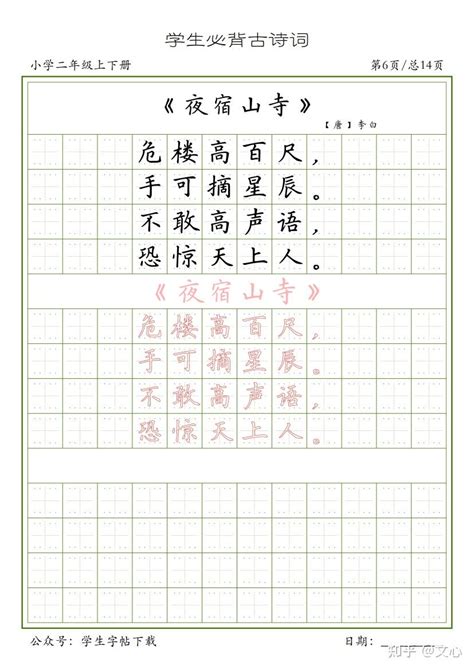 学生必背古诗词
小学二年级上下册 第6页/总14页
《夜宿山寺》
【唐】李白
危楼高百尺，
手可摘星辰。
不敢高声语，
恐惊天上人。
《夜宿山寺》
危楼高百尺，
手可摘星辰。
不敢高声语，
恐惊天上人。
公众号：学生字帖下载 日期：
知乎 @文心